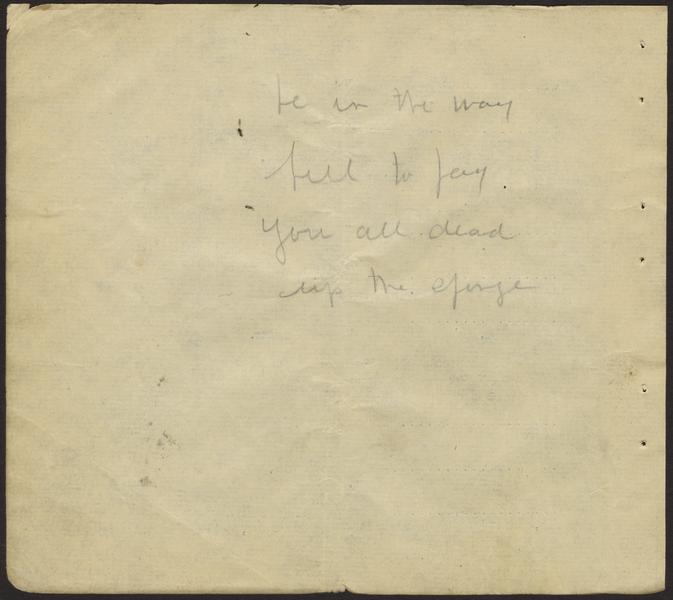 be in the way
bill to pay.
You all dead
up the sponge